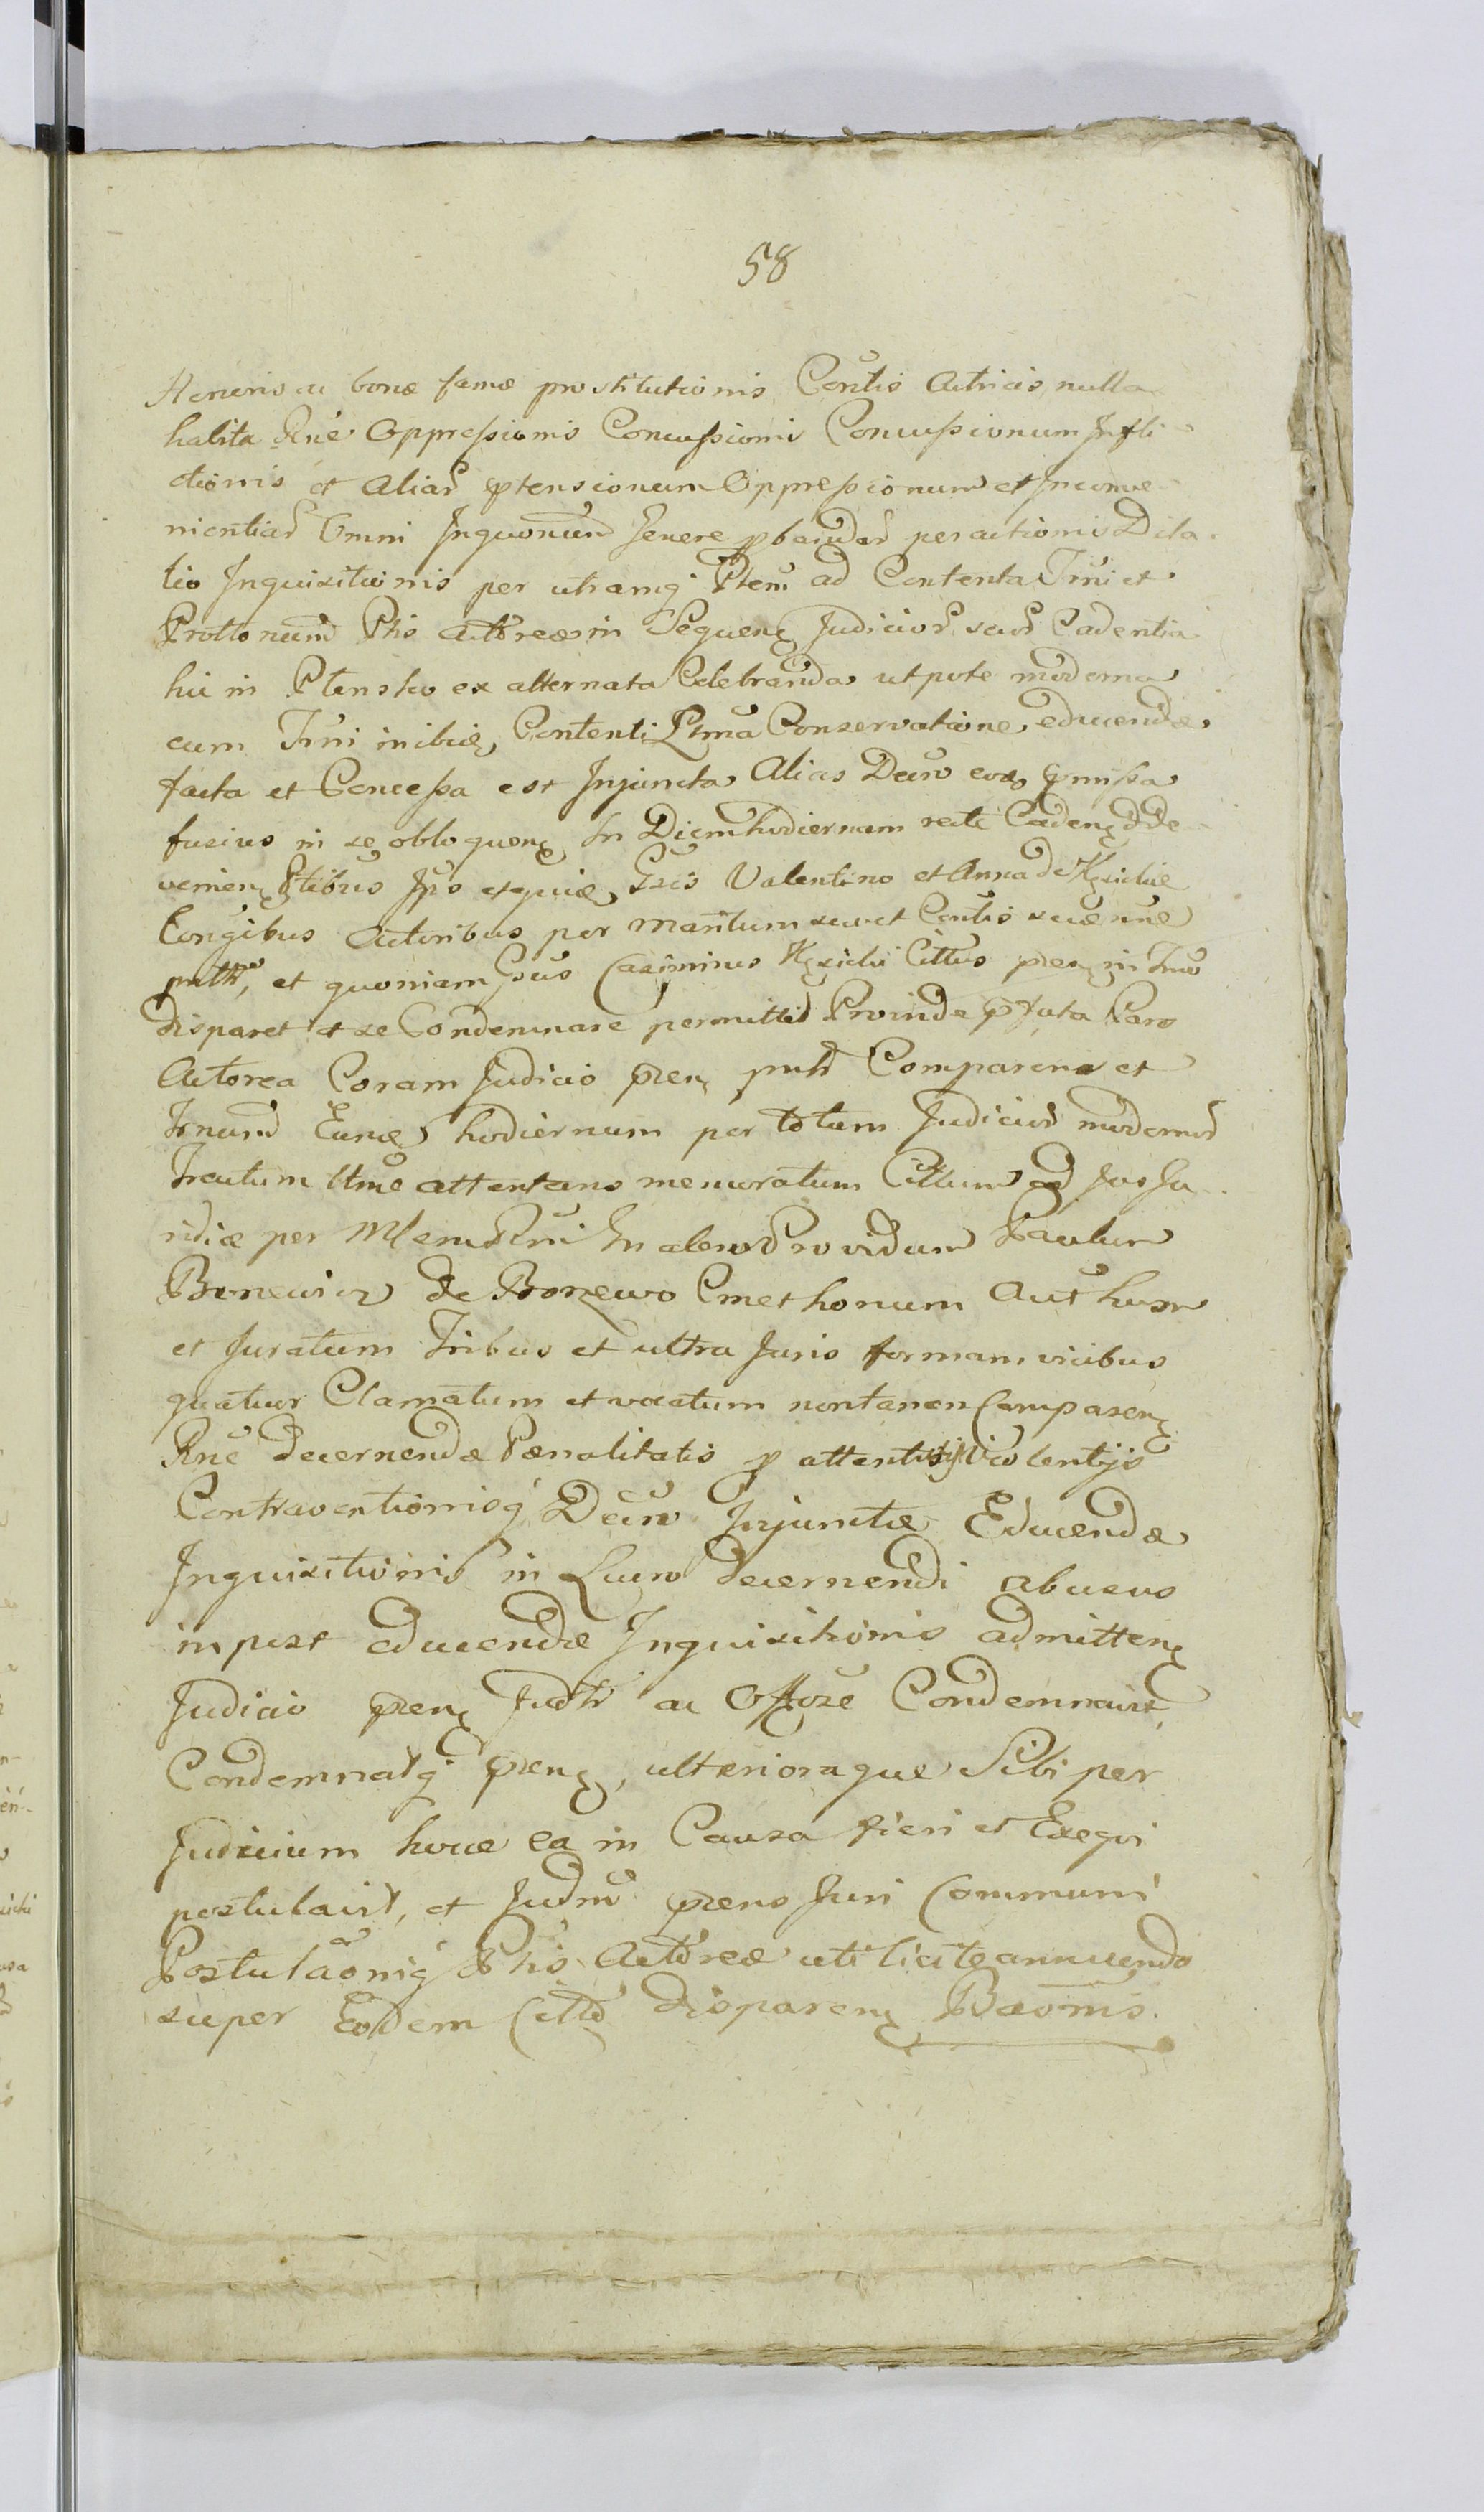 58
Honoris ac bonæ famæ prostitutionis Contis Actricis, nulla
habita Rne Oppressionis Concussionis Concussionum Infli
ctionis et Aliar ptensionum Oppressionum et Inconve
nientiar Omni Inquonum Genere pbandar peractionis Dila
tio Inquisitionis per utramq Ptem ad Contenta Tmi et
Prottonum Ptis Actoreæ in Sequen Judicior suor Cadentia
hic in Ptensko ex alternata Celebranda utpote moderna
cum Tmi inibiq Contenti Ptma Conservatione educendæ
facta et Concessa est Injuncta Alias Decro eoq pmissa
fusius in se obloquen In Diem hodiernum recte Caden dde
venien Ptibus Ipis etquiæ Gsis Valentino et Anna de
Congibus Actoribus per Maritum suæ et Contis suæ nne
et quoniam Gsus Casimirus Cittus pen in Tmo
disparet et se Condemnare permittit Proinde pfata Pars
Actorea Coram Judicio pen psnlr Comparens et
Tmum Eunq hodiernum per totum Judicior modernor
Tractum ltme attentans memoratum Cittum ad Jus Ju
ridice per Mlem Rni Providum Paulum
de Cmethonum
et Juratum Tribus et ultra Juris formam vicibus
quatuor Clamatum et vocatum nontamen Comparen
Rne decernendæ Pænalitatis p attentis Violentijs
Contraventionisq Decro Injunctæ Educendæ
Inquisitionis in Lucro decernendi abusus
in post educendæ Inquisitionis admitten
Judicio pen Judtr ac Offose Condemnavit
Condemnatq pen, ulterioraque Sibi per
Judicium hocce ea in Causa fieri et Exequi
postulavit, et Judm pens Juri Communi
Postulaoniq Ptis Actoreæ uti licite annuendo
super Eodem Citto disparen Baomis.